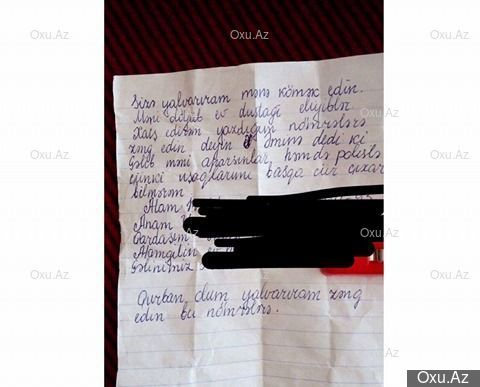 Sizə yalvarıram mənə kömək edin.
Məni döyüb ev dustağı eliyiblər
Xaiş edirəm yazdığım nömrələrə
zəng edin deyin Əminə dedi ki
gəlib məni aparsınlar, həmdə polislə
çünki uşaqlarımı başqa cür çıxar
bilmərəm
Atam
Anam
Qardaşım
Atamgilin
Gəlinimiz
Qurban olum yalvarıram zəng
edin bu nömrələrə.
Oxu.Az
Oxu.Az
Oxu.Az
Oxu.Az
Oxu.Az
Oxu.Az
Oxu.Az
Oxu.Az
Oxu.Az
Oxu.Az
Oxu.Az
Oxu.Az
Oxu.Az